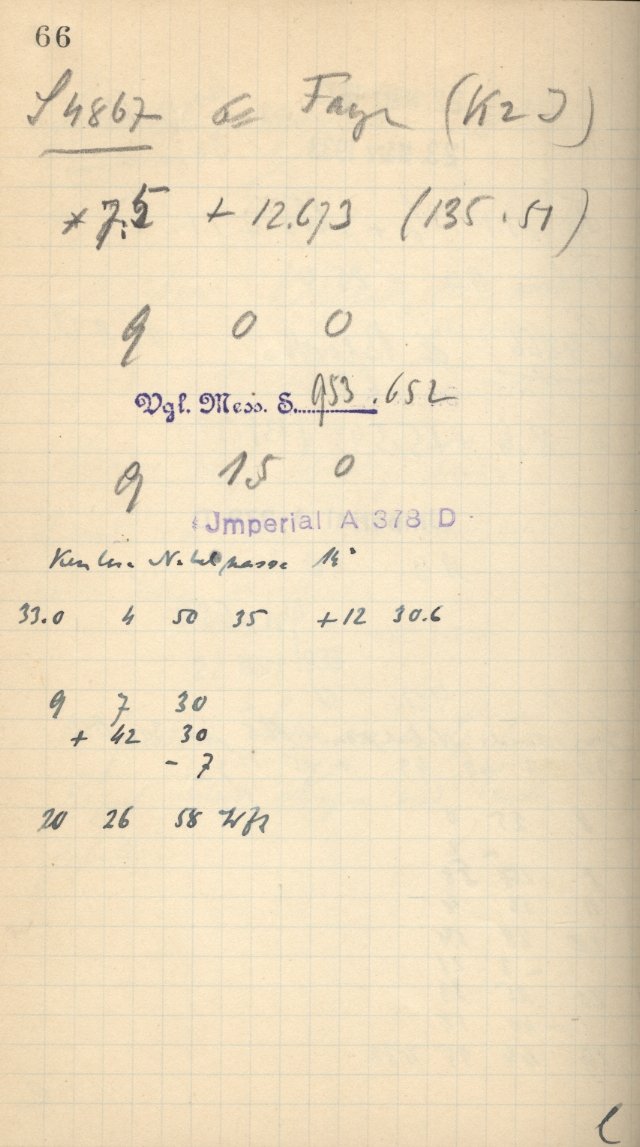 66
S4867 a= Faye (K2 J)
* 7.5 + 12.673 (135.51)
9 0 0
Vgl. Mess. S. 953.652
9 15 0
Jmperial A 378 D
Nebelmasse 14°
33.0 4 50 35 +12 30.6
9 7 30
+ 42 30
- 7
20 26 58